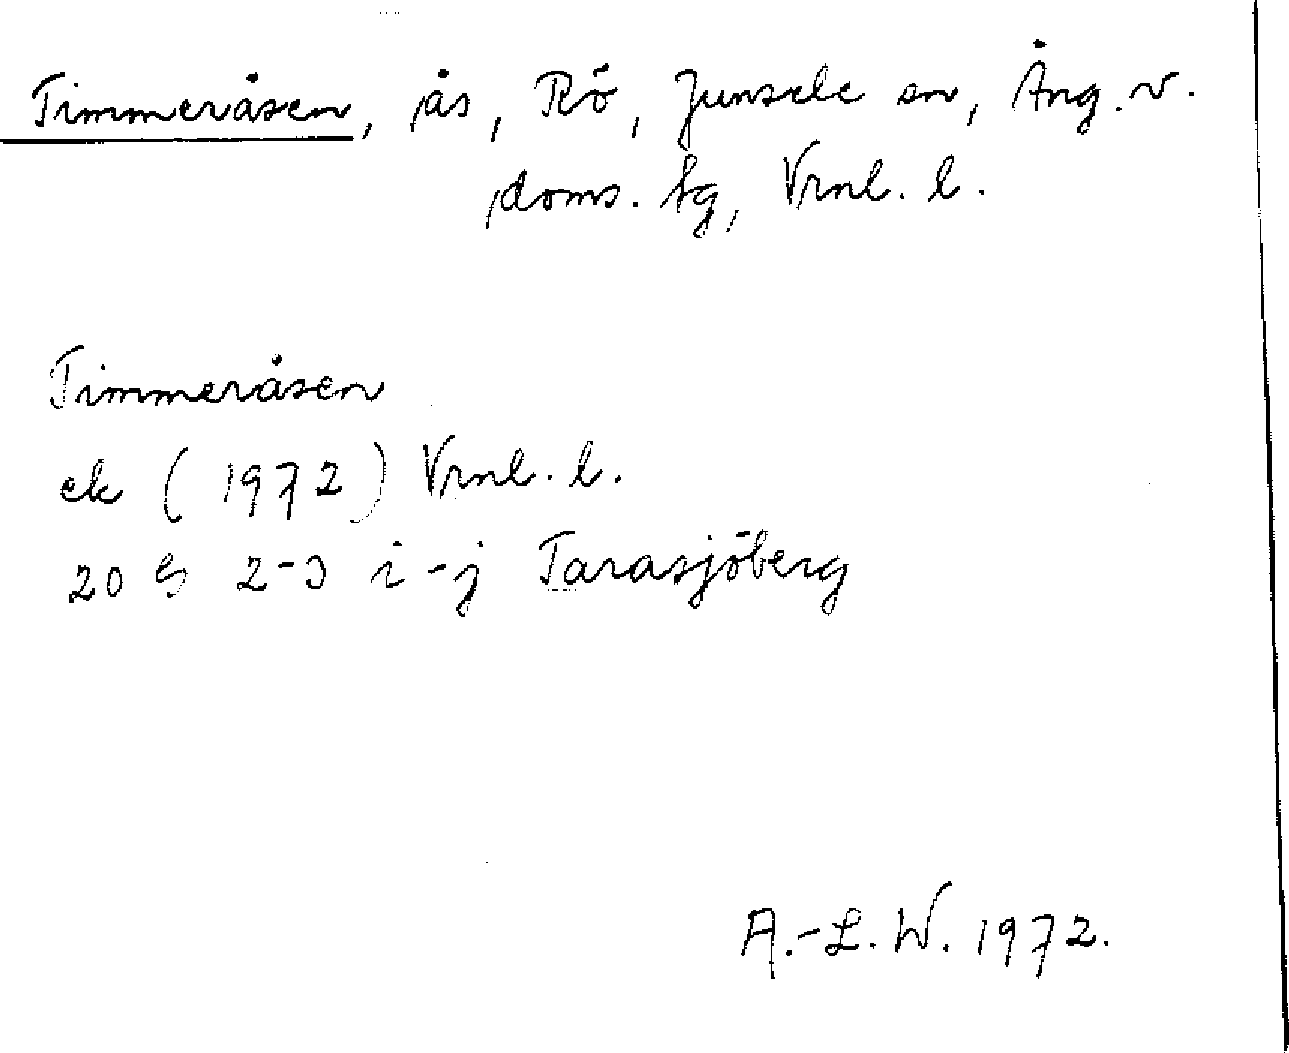 Timmeråsen, ås, Rö, Junsele sn, Ång. v.
doms. tg, Vrnl. l.
Timmeråsen
ek (1972) Vrnl. l.
20 G 2-3 i-j Tarasjöberg
A.-L. W. 1972.